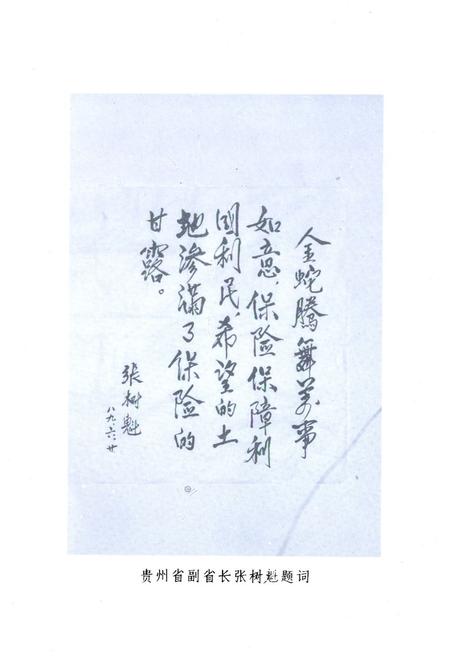 金蛇腾舞万事
如意，保险保障利
国利民，希望的土
地渗满了保险的
甘露。
张树魁
八九.六.廿
贵州省副省长张树魁题词